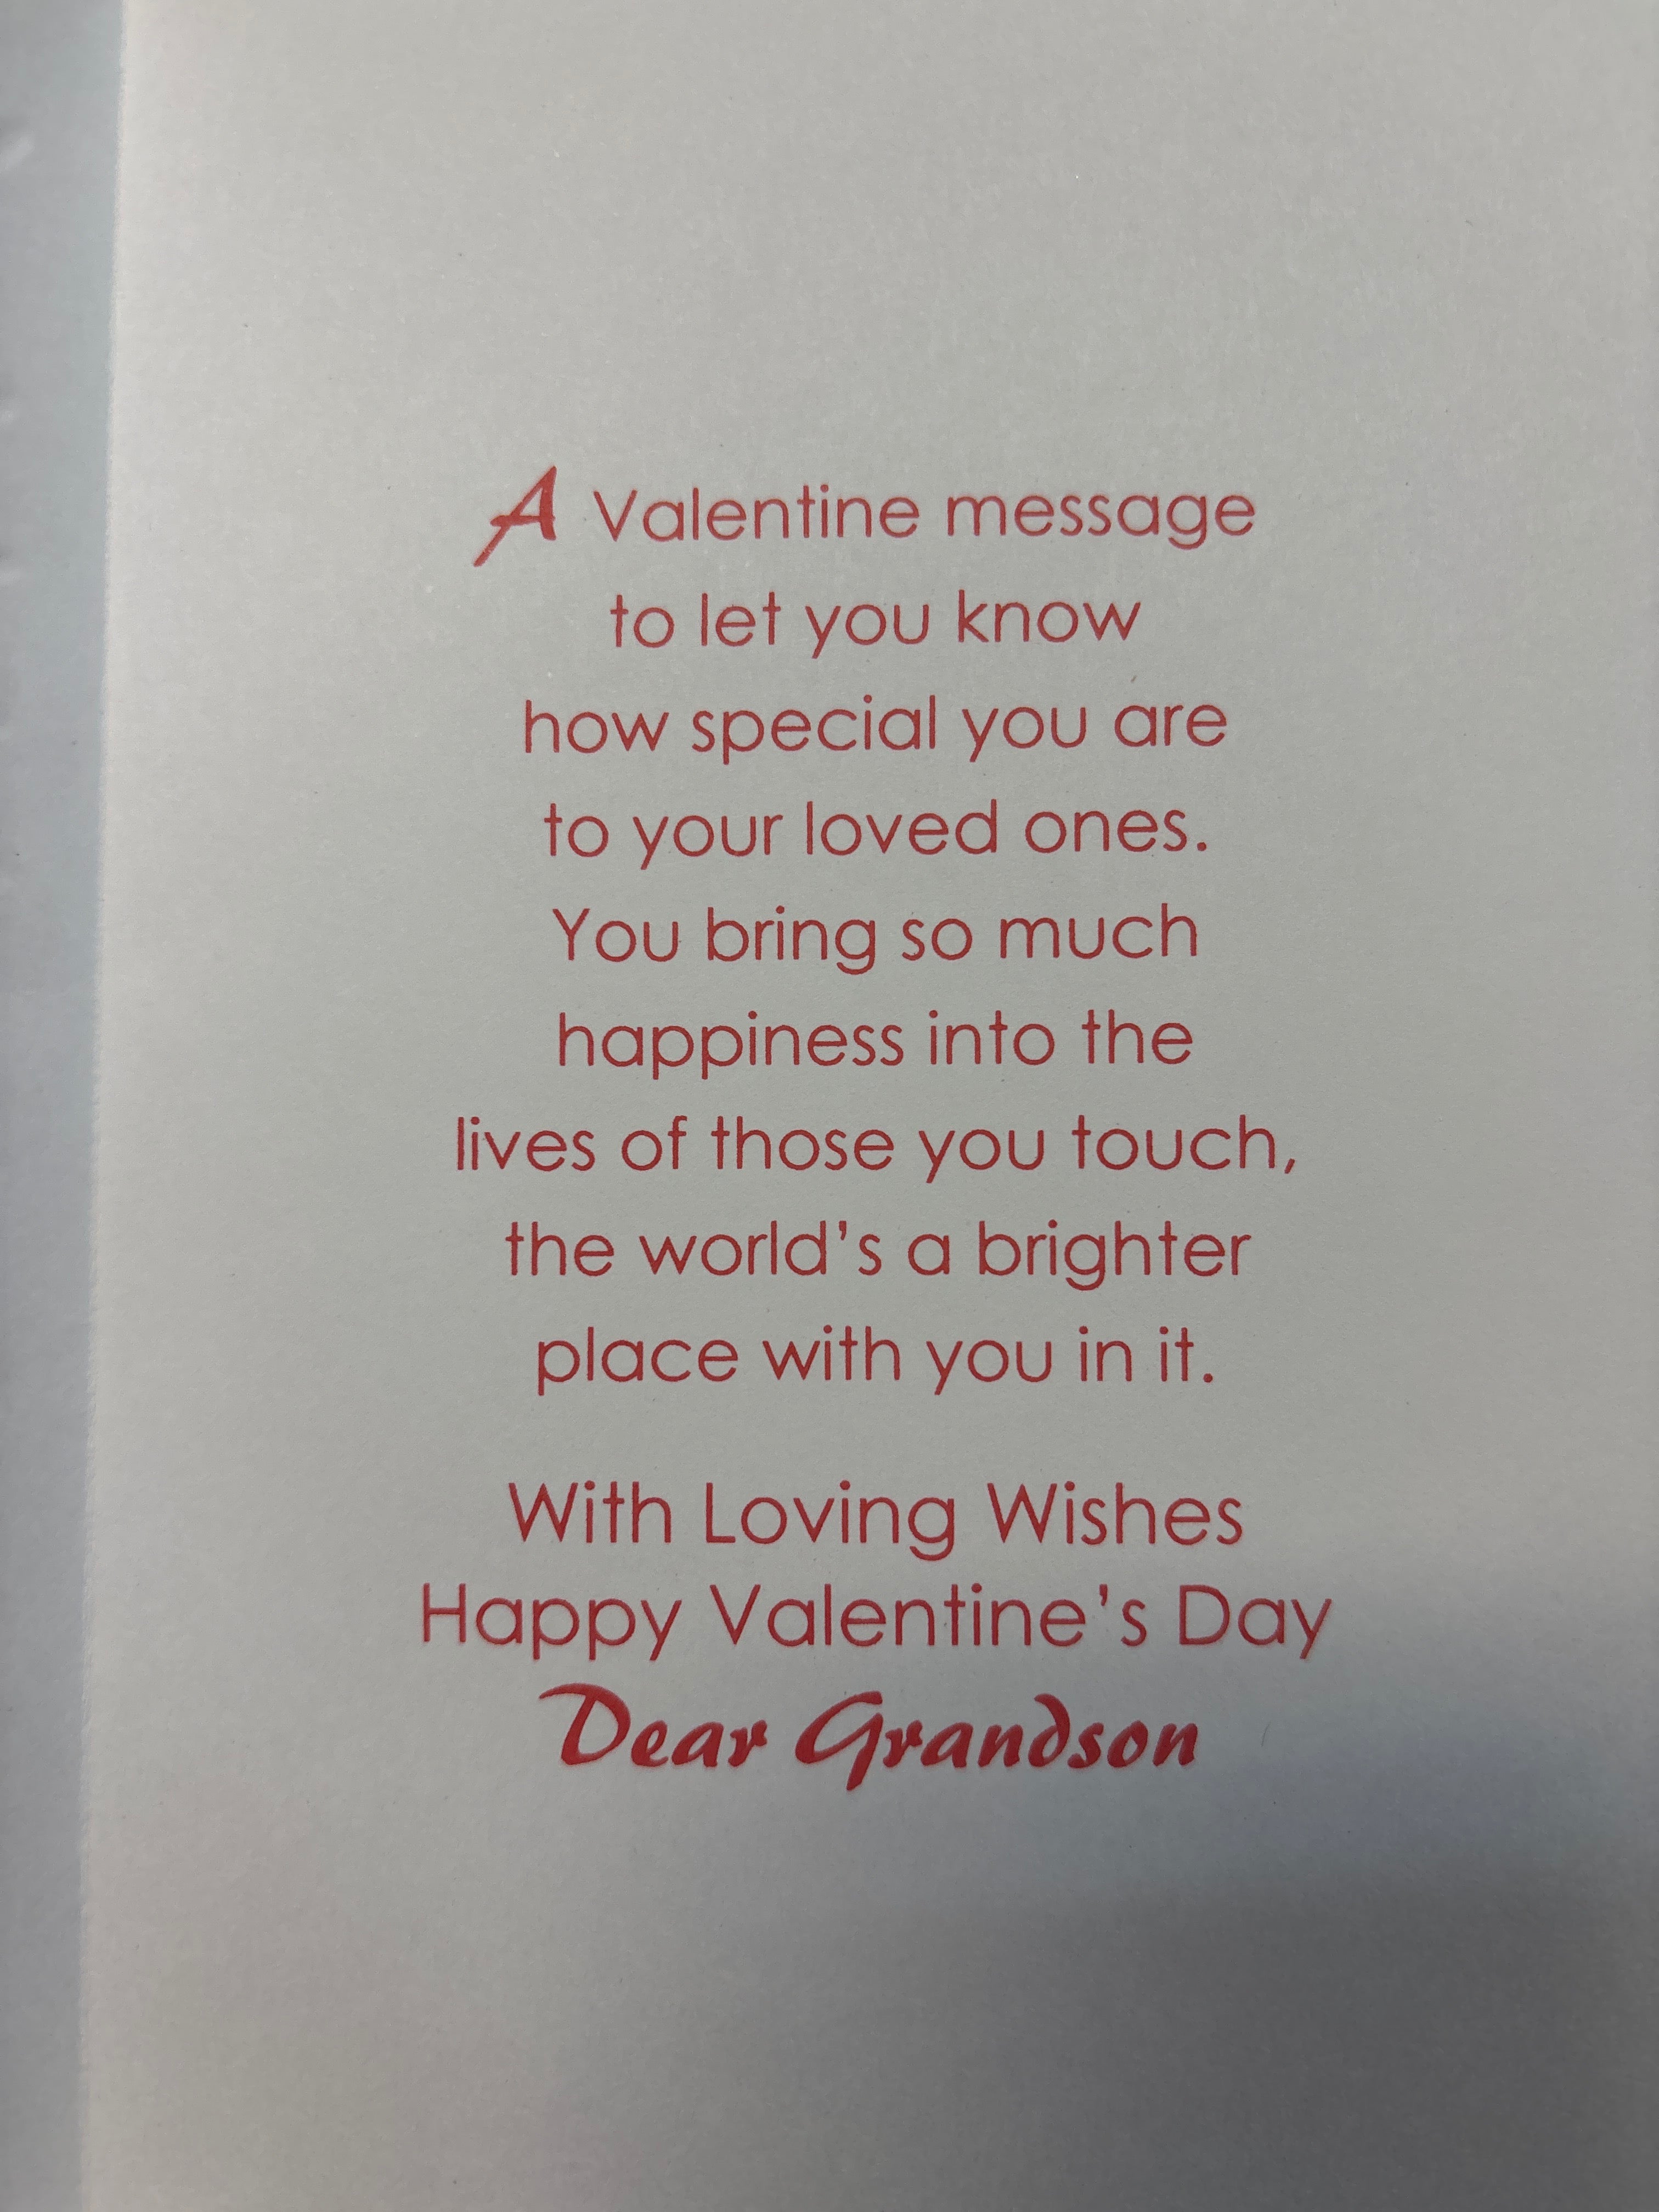 A Valentine message
to let you know
how special you are
to your loved ones.
You bring so much
happiness into the
lives of those you touch,
the world’s a brighter
place with you in it.
With Loving Wishes
Happy Valentine’s Day
Dear Grandson